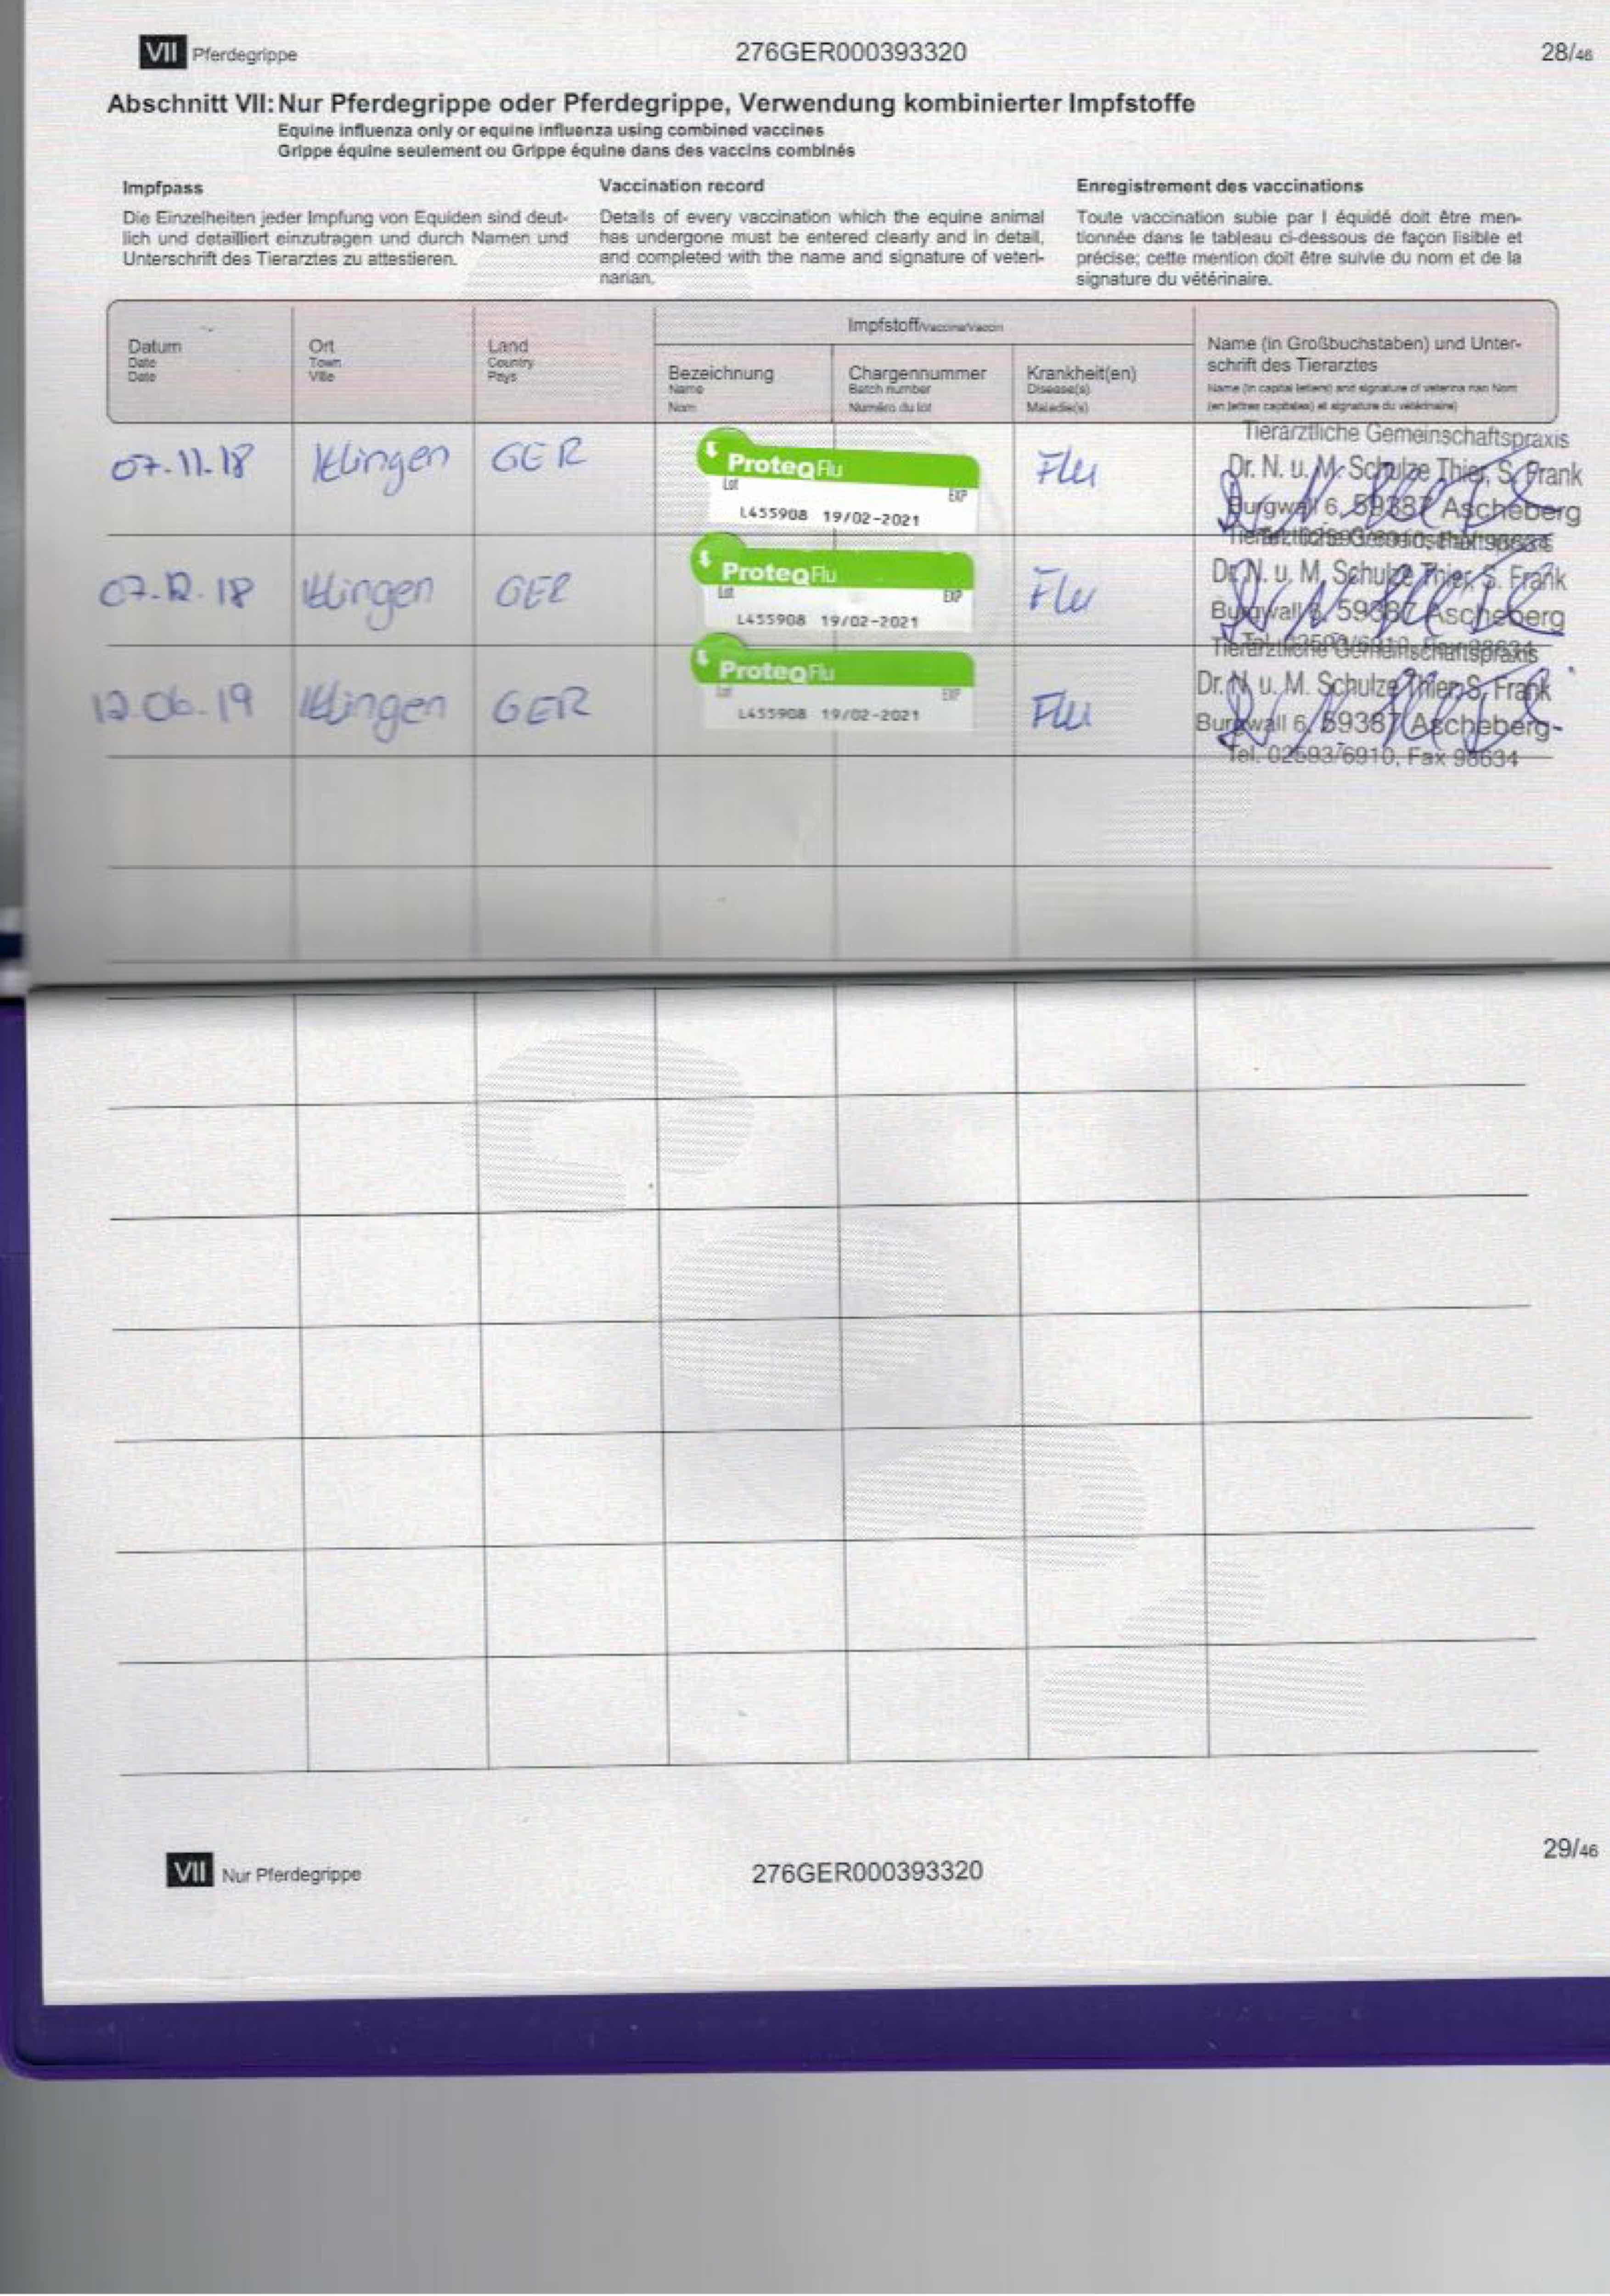 VII Pferdegrippe 276GER000393320 28/46
Abschnitt VII: Nur Pferdegrippe oder Pferdegrippe, Verwendung kombinierter Impfstoffe
Equine influenza only or equine influenza using combined vaccines
Grippe équine seulement ou Grippe équine dans des vaccins combinés
Impfpass
Die Einzelheiten jeder Impfung von Equiden sind deut-
lich und detailliert einzutragen und durch Namen und
Unterschrift des Tierarztes zu attestieren.
Vaccination record
Details of every vaccination which the equine animal
has undergone must be entered clearly and in detail,
and completed with the name and signature of veteri-
narian.
Enregistrement des vaccinations
Toute vaccination subie par l équidé doit être men-
tionnée dans le tableau ci-dessous de façon lisible et
précise; cette mention doit être suivie du nom et de la
signature du vétérinaire.
Datum
Date
Date
Ort
Town
Ville
Land
Country
Pays
Impfstoff/Vaccine/Vaccin
Bezeichnung
Name
Nom
Chargennummer
Batch number
Numéro du lot
Krankheit(en)
Disease(s)
Maladie(s)
Name (in Großbuchstaben) und Unter-
schrift des Tierarztes
Name (in capital letters) and signature of veterina rian Nom
(en lettres capitales) et signature du vétérinaire)
07.11.18 GER
ProteqFlu
Lot EXP
L455908 19/02-2021
Flu
Tierärztliche Gemeinschaftspraxis
Dr. N. u. M. Schulze Thier, S. Frank
Burgwall 6, 59387 Ascheberg
07.12.18 GER
ProteqFlu
Lot EXP
L455908 19/02-2021
Flu
Dr. N. u. M. Schulze Thier, S. Frank
Burgwall 6, 59387 Ascheberg
Tel. 02593/6910, Fax 98634
12.06.19 GER
ProteqFlu
Lot EXP
L455908 19/02-2021
Flu
Tierärztliche Gemeinschaftspraxis
Dr. N. u. M. Schulze Thier, S. Frank
Burgwall 6, 59387 Ascheberg
Tel. 02593/6910, Fax 98634
29/46
VII Nur Pferdegrippe 276GER000393320